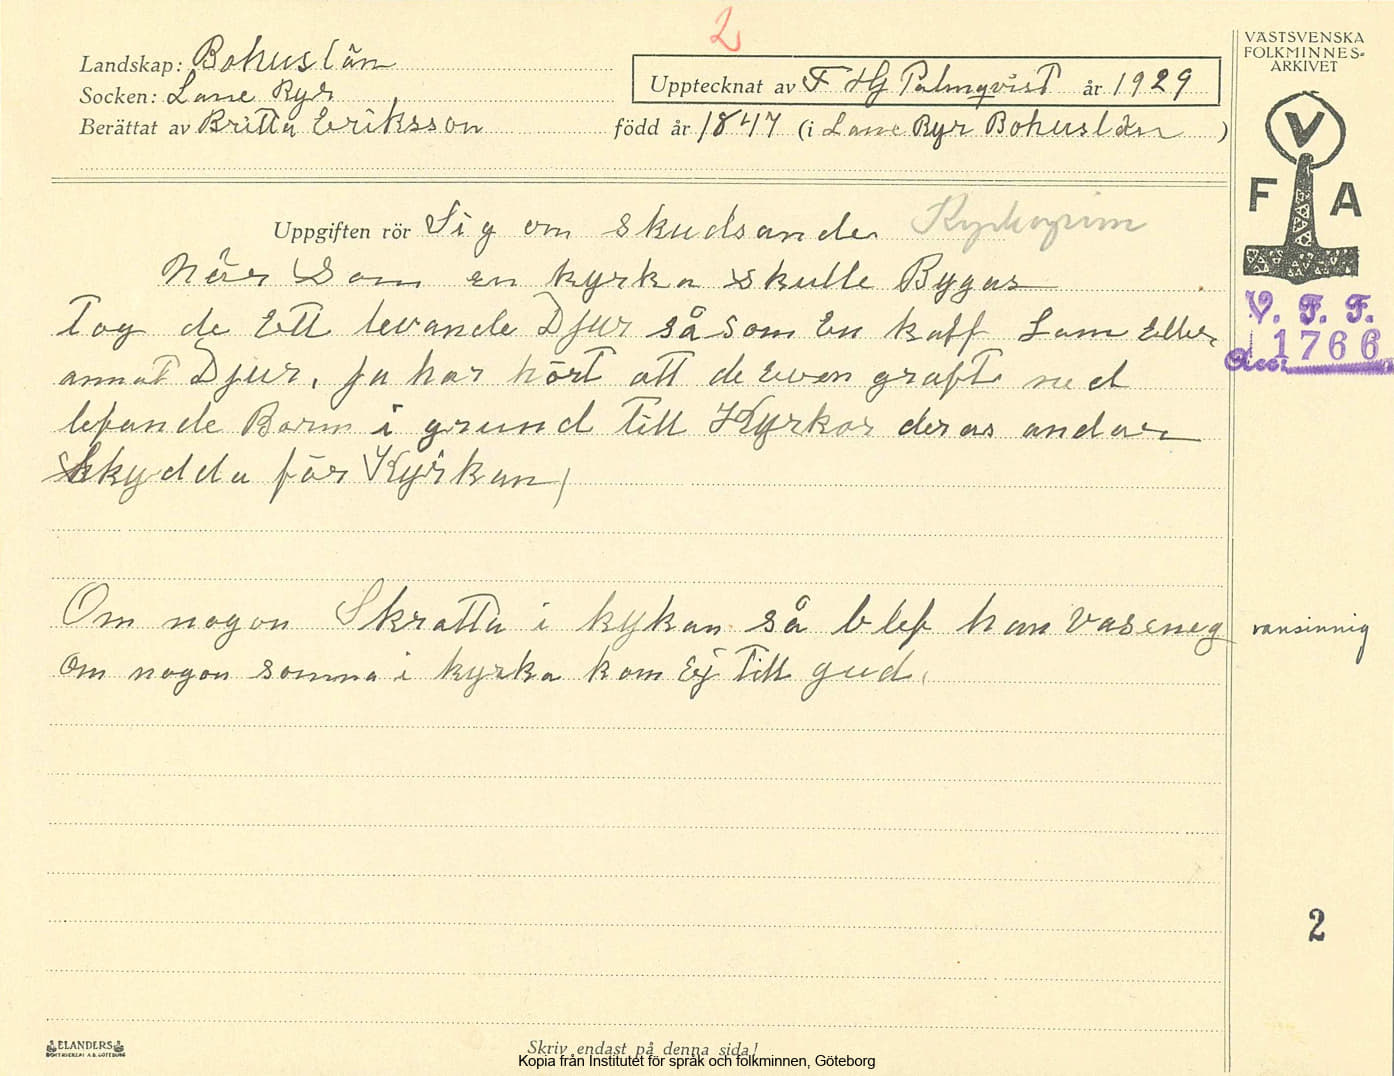 2
Landskap: Bohuslän
Socken: Lane Ryr
Upptecknat av F Hg Palmqvist år 1929
Berättat av Britta Eriksson född år 1847 (i Lane Ryr Bohuslän)
VÄSTSVENSKA
FOLKMINNES-
ARKIVET
V
F A
V. F. F.
Acc. 1766
Uppgiften rör Sig om skudsande Kyrkogrim
När Som en kyrka skulle Bygas
Tog de Ett levande Djur så som En kalf Lam Eller
annat Djur, ja har hört att de Even graft ned
lefande Barn i grund till Kyrkor deras andar
Skydda för Kyrkan,
Om nogon Skratta i kykan så blef han Vaseneg vansinnig
Om nogon somna i kyrka kom Ej till gud.
2
ELANDERS
BOKTRYCKERI A.B. GÖTEBORG
Skriv endast på denna sida!
Kopia från Institutet för språk och folkminnen, Göteborg